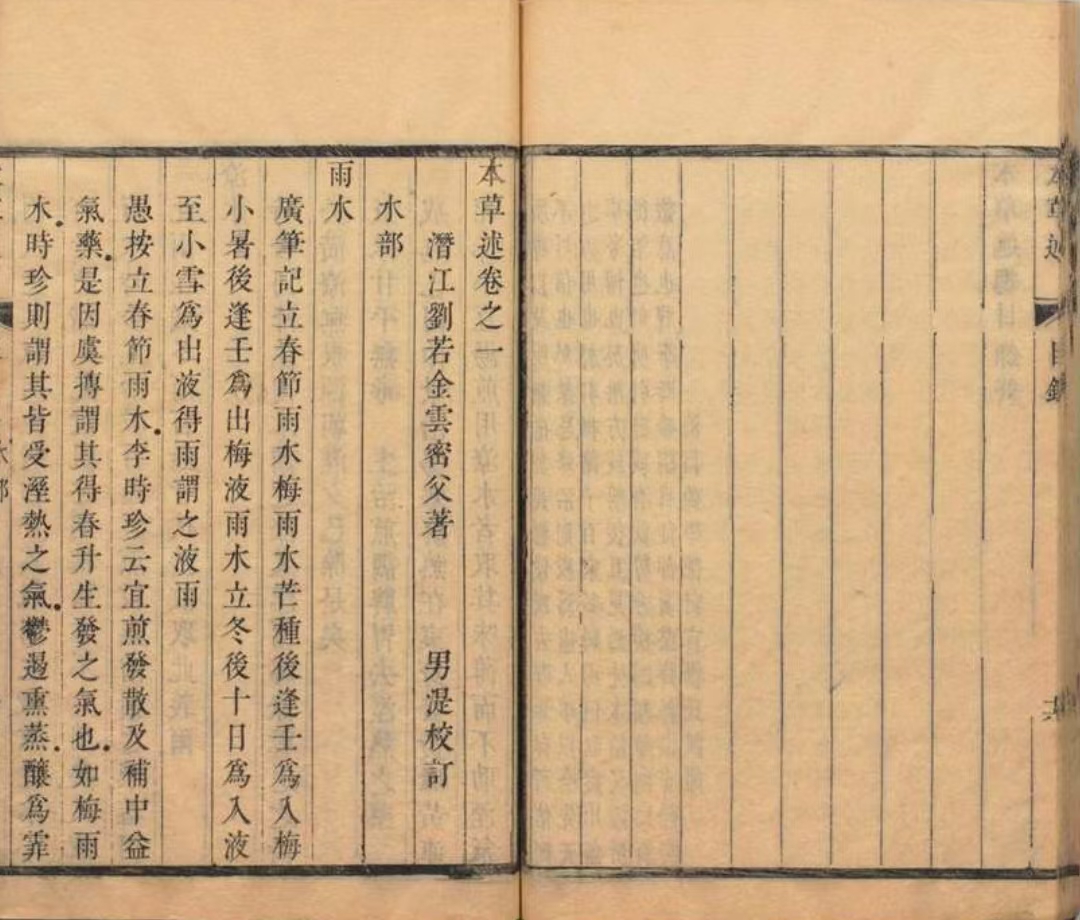 目錄
本草述卷之一
潛江劉若金雲密父著 男湜校訂
水部
雨水
廣筆記立春節雨水梅雨水芒種後逢壬爲入梅
小暑後逢壬爲出梅液雨水立冬後十日爲入液
至小雪爲出液得雨謂之液雨
愚按立春節雨水李時珍云宜煎發散及補中益
氣藥是因虞摶謂其得春升生發之氣也如梅雨
水時珍則謂其皆受溼熱之氣鬱遏熏蒸釀爲霏